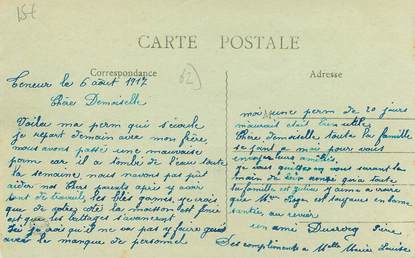 157
CARTE POSTALE
Correspondance
62)
Adresse
Teneur le 6 août 1917
Chère Demoiselle
Voilà ma perm qui s'écoule
je repart demain avec mon frère,
nous avons passé une mauvaise
perm car il a tombé de l'eau toute
la semaine, nous navons pas pût
aider nos chers parents après y avoir
tant de travail, les blés gamés, je crois
que de votre côté la moisson est finie
et que les battages s'avancent.
Ici je crois qu'il ne vas pas y faire
avec le manque de personnel
moi, une perm de 20 jours
m'aurait était bien utile
Chère demoiselle toute la famille
se joint à moi pour vous
amitiés,
je vous quittes en vous serrant la
main de bien ainsi qu'à toute
la famille et j'aime à croire
que Mme Roger est toujours en bonne
santée, au revoir
son ami Dusevog
Ses compliments à Melle Marie Louise